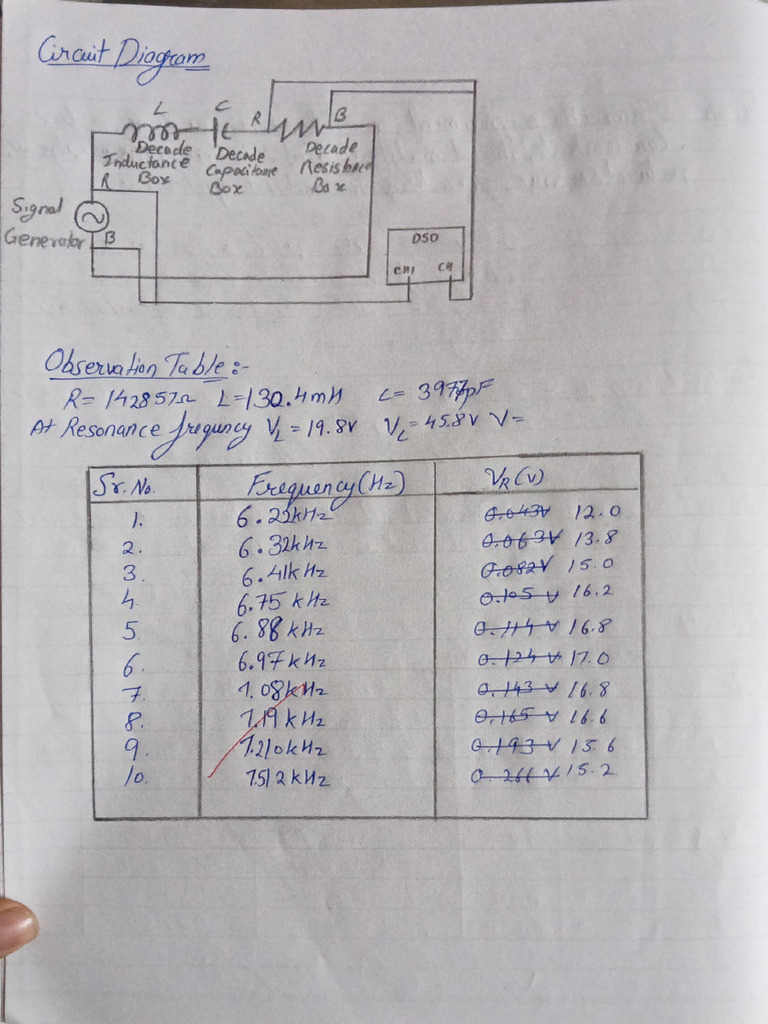 Circuit Diagram
L C R B
Decade Inductance Box
Decade Capacitance Box
Decade Resistance Box
R
Signal Generator
B
DSO
CH1 CH
Observation Table :-
R= 142857Ω L=130.4mH C=
At Resonance frequncy V_L = 19.8V V_C = 45.8V V=
Sr. No. Frequency (Hz) V_R (V)
1. 6.22kHz 0.043V 12.0
2. 6.32kHz 0.063V 13.8
3. 6.41kHz 0.082V 15.0
4. 6.75 kHz 0.105 V 16.2
5. 6.88 kHz 0.114 V 16.8
6. 6.97kHz 0.124 V 17.0
7. 7.08kHz 0.143 V 16.8
8. 7.19 kHz 0.165 V 16.6
9. 7.210kHz 0.193 V 15.6
10. 7.512kHz 0.266 V 15.2